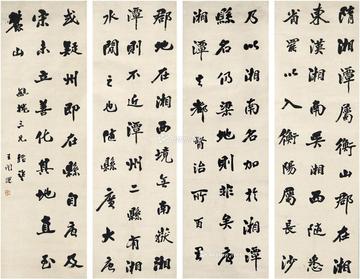 隋湘潭屬衡郡在湘
東漢湘南吳湘西隨悉
省罷以入衡陽屬長沙
乃以湘南名加於湘南
縣名仍梁地則非矣唐
湘潭之都督治所百里
郡地在湘西境無南嶽湘
潭則不近潭州二縣有湘
水間之也隨縣廣大唐
或疑州即在縣自唐及
宋未立善化其地直至
麓山 三兄 王闓運